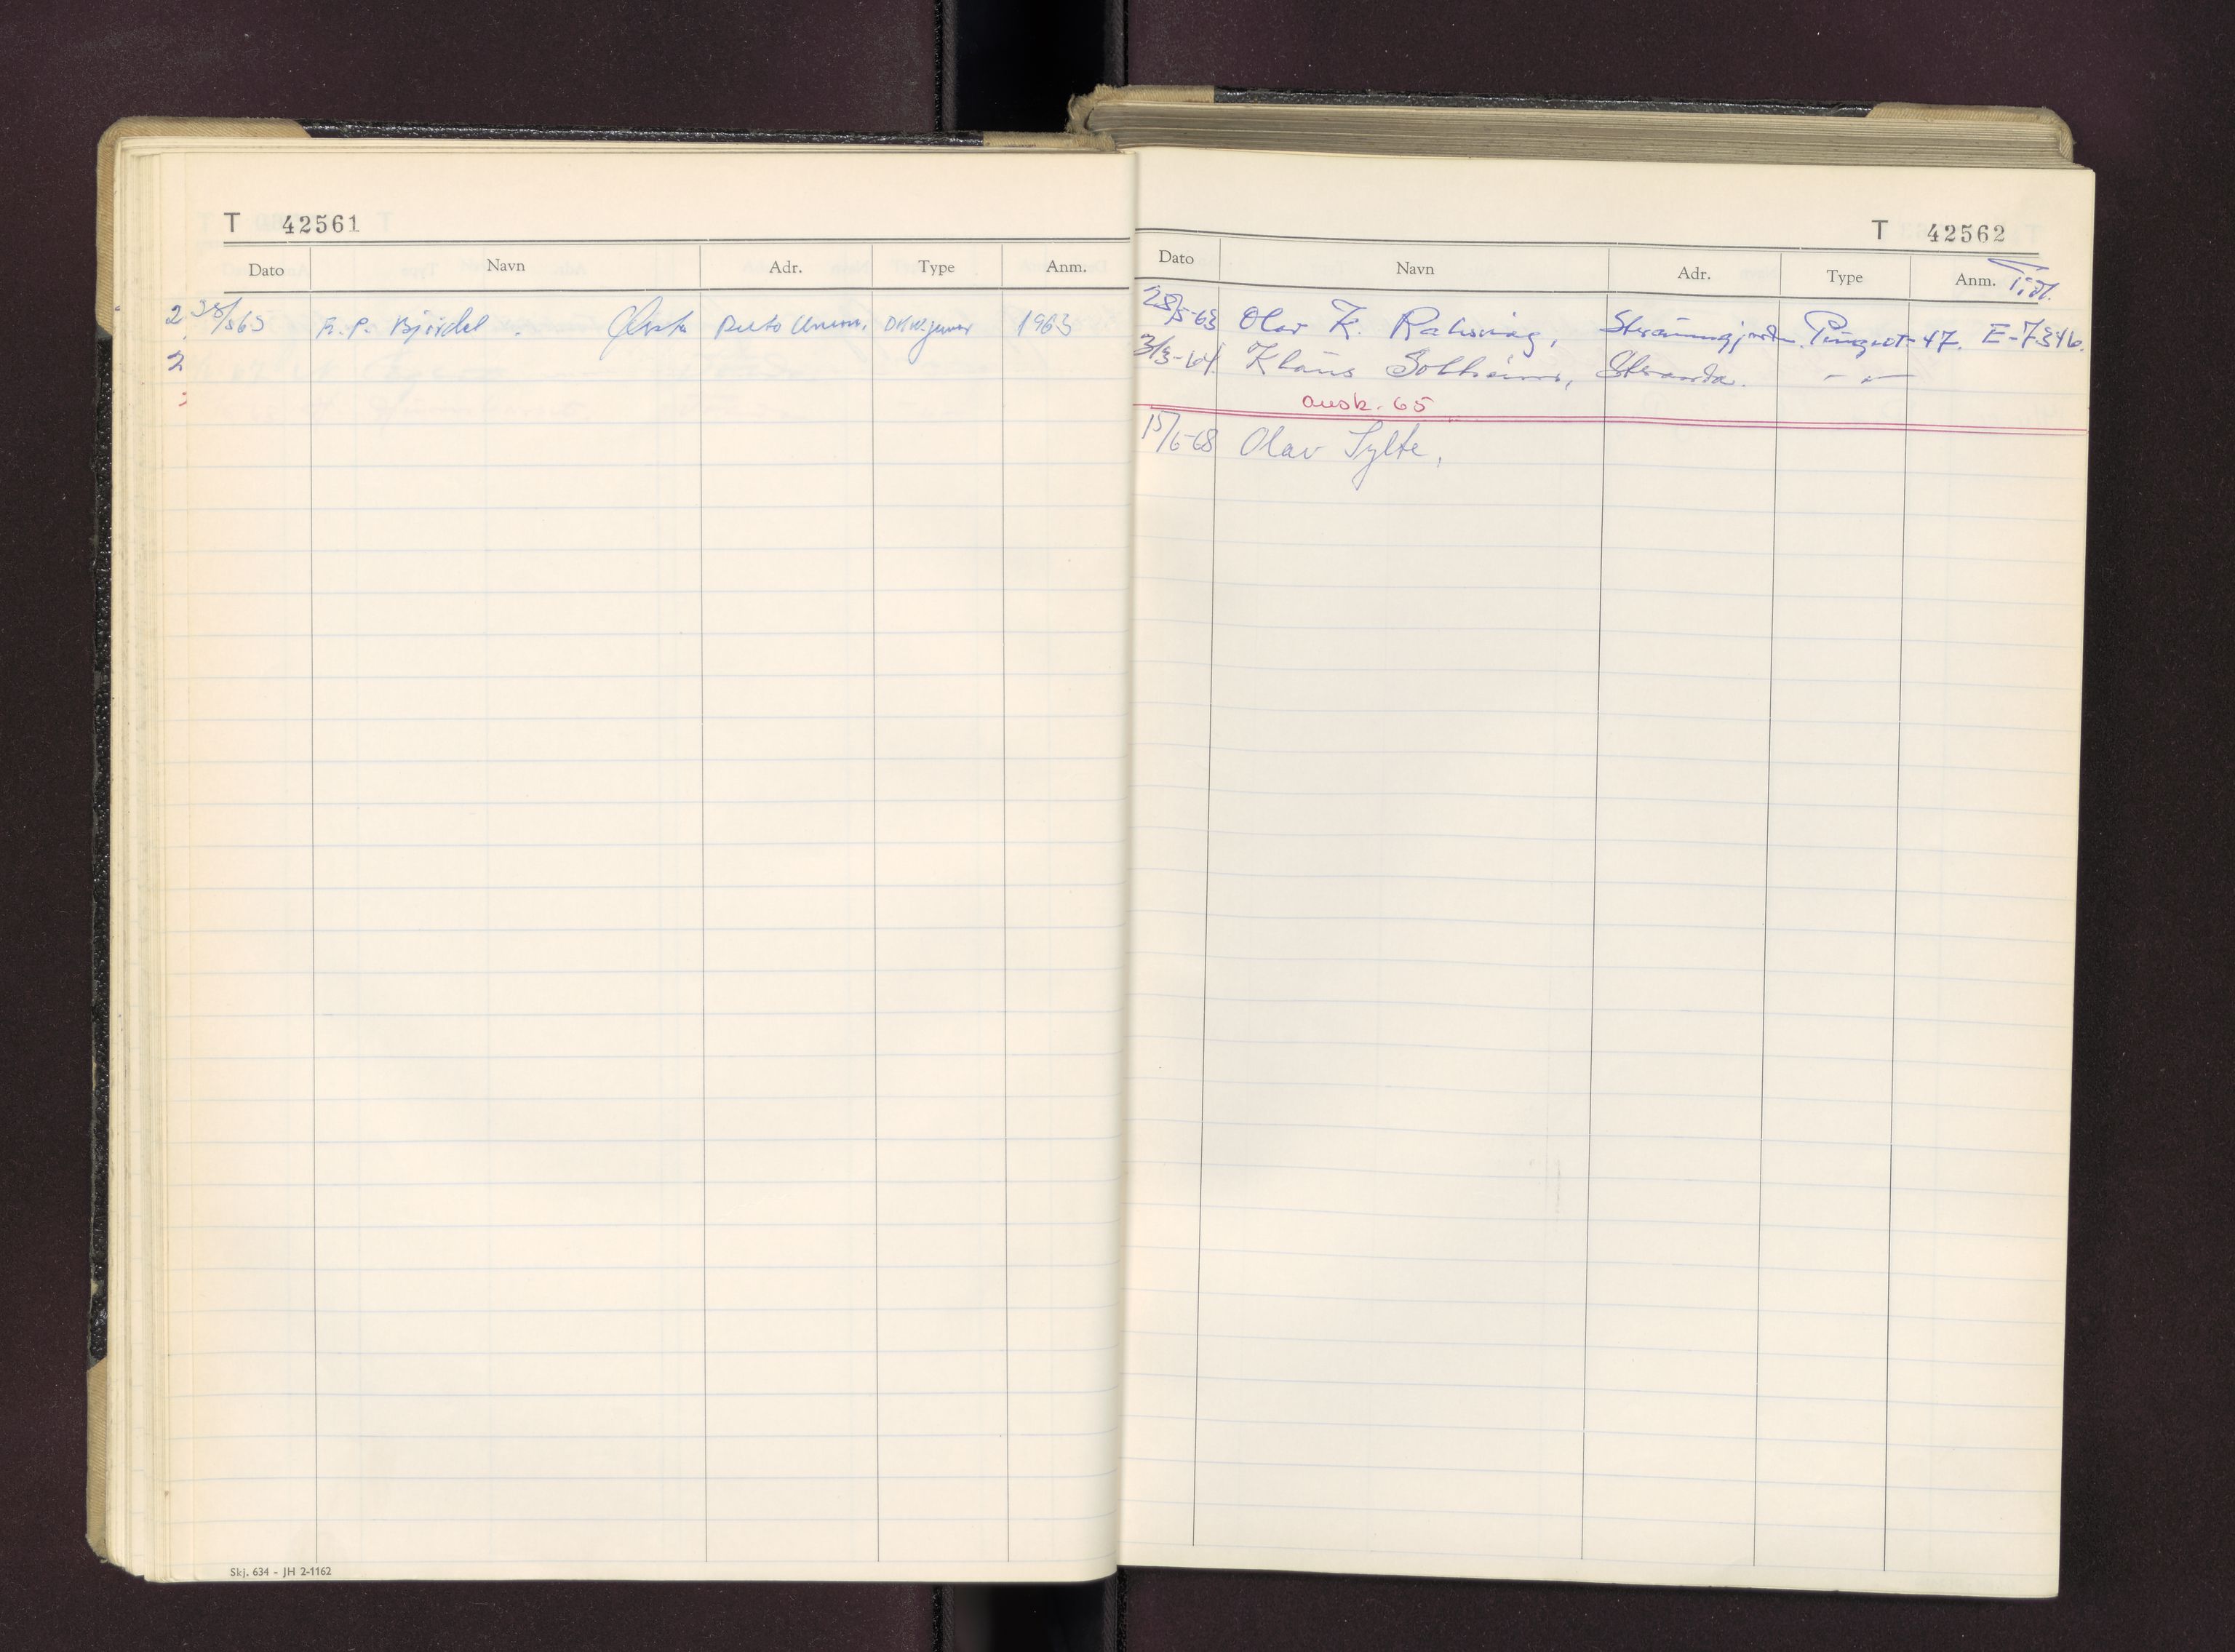 T 42561
Dato Navn Adr. Type Anm.
P. Bjørdal. Ørsta Auto Union. DKW junior 1963
2
Skj. 634 - JH 2-1162
T 42562
Dato Navn Adr. Type Anm. Tidl.
28/5-63 Olav K. Ratvsvåg, Peugeot 47. E-7346.
3/3-64. Klaus Solheim, Stranda. - " -
avsk. 65
15/6-68 Olav Sylte,